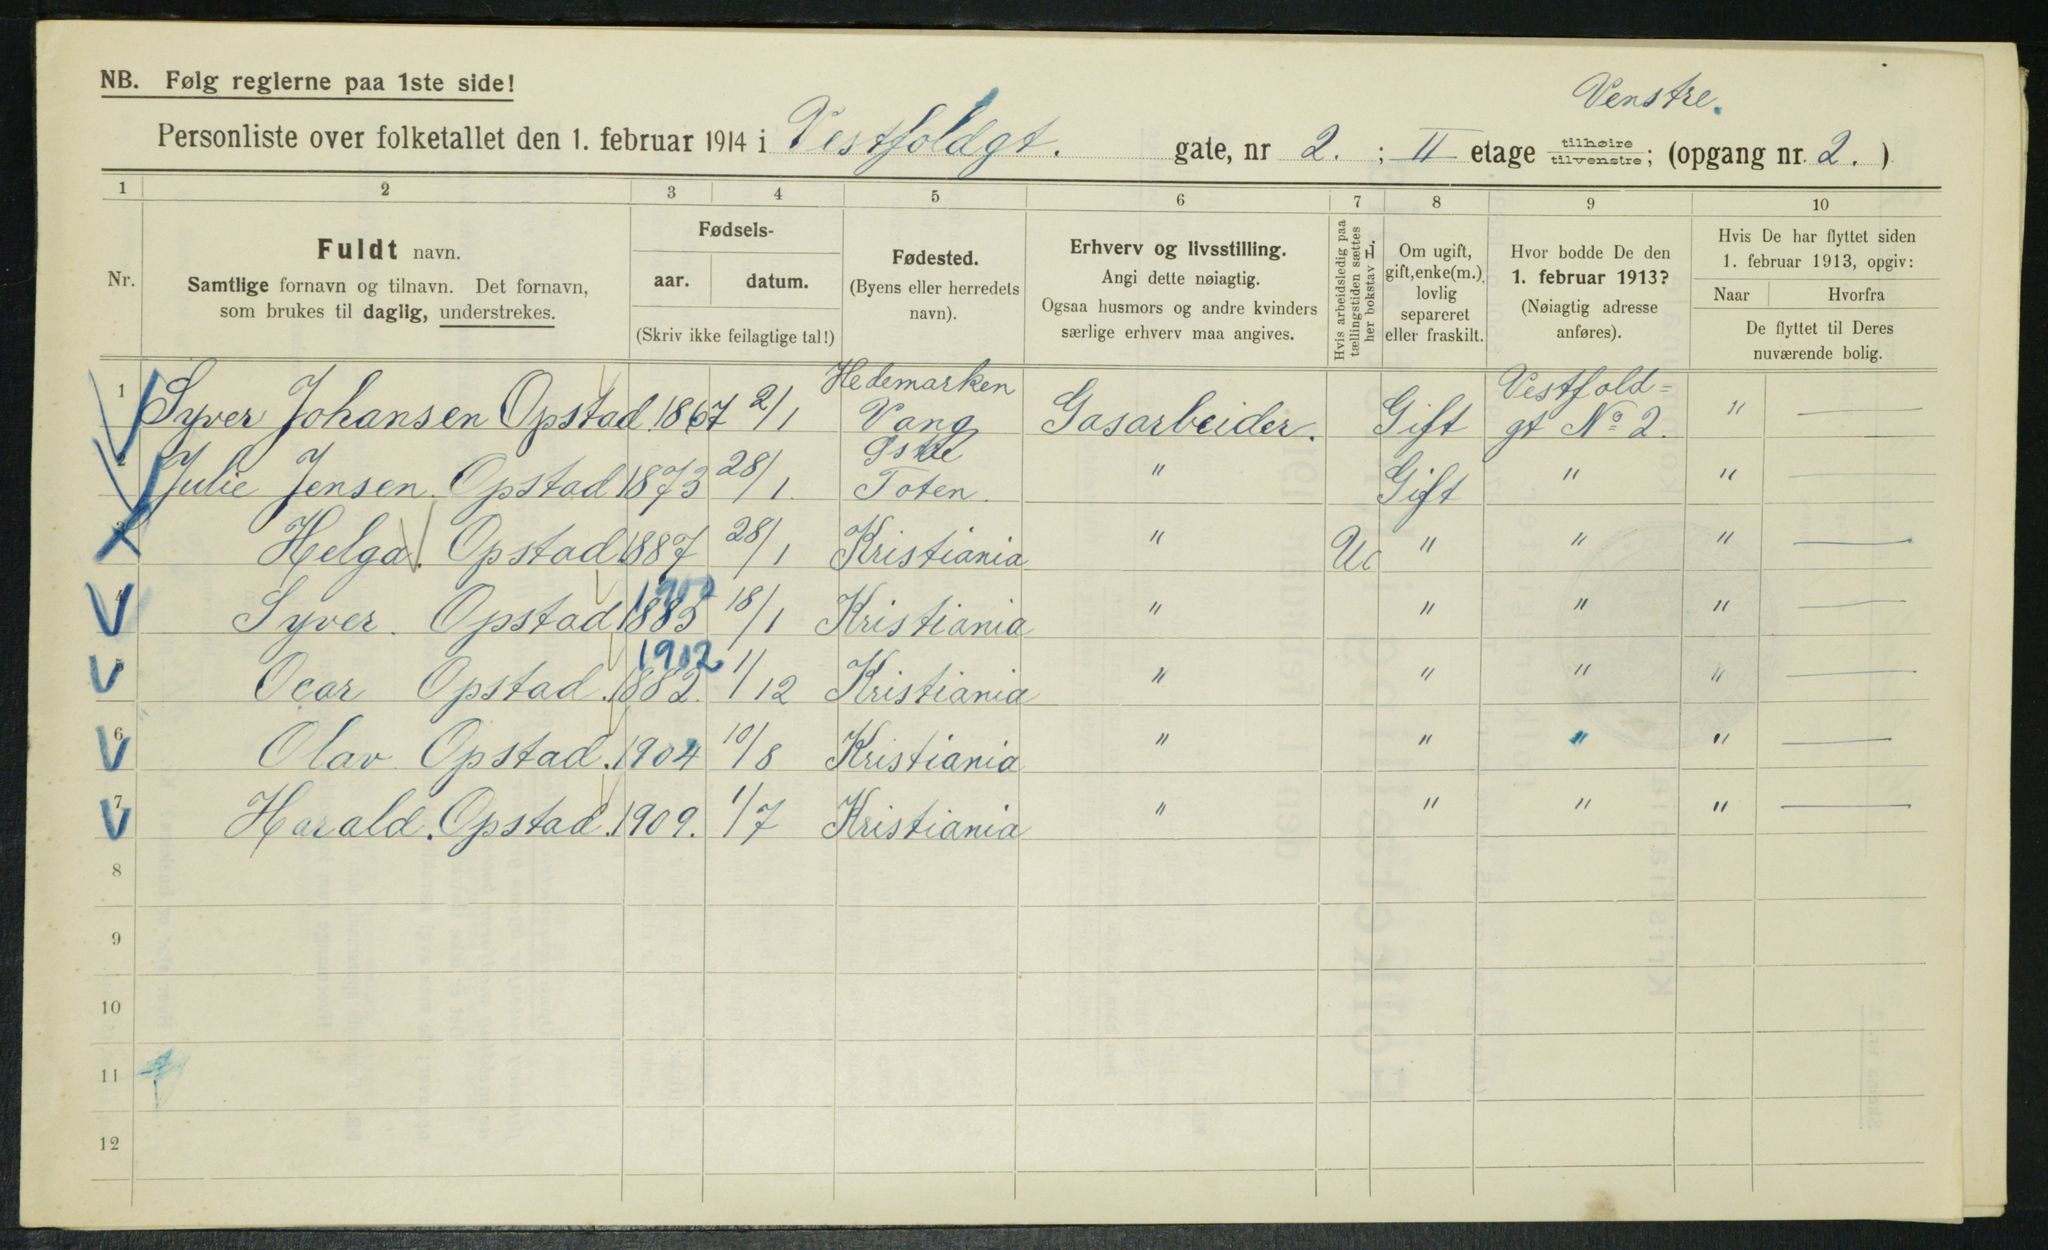 NB. Følg reglerne paa 1ste side!
Venstre.
Personliste over folketallet den 1. februar 1914 i Vestfoldgt. gate, nr 2. ; II etage tilhøire tilvenstre; (opgang nr. 2. )
1 2 3 4 5 6 7 8 9 10
Nr.
Fuldt navn.
Samtlige fornavn og tilnavn. Det fornavn,
som brukes til daglig, understrekes.
Fødsels-
aar. datum.
(Skriv ikke feilagtige tal!)
Fødested.
(Byens eller herredets
navn).
Erhverv og livsstilling.
Angi dette nøiagtig.
Ogsaa husmors og andre kvinders
særlige erhverv maa angives.
Hvis arbeidsledig paa
tællingstiden sættes
her bokstav L.
Om ugift,
gift, enke(m.),
lovlig
separeret
eller fraskilt.
Hvor bodde De den
1. februar 1913?
(Nøiagtig adresse
anføres).
Hvis De har flyttet siden
1. februar 1913, opgiv:
Naar Hvorfra
De flyttet til Deres
nuværende bolig.
Hedemarken Vestfold=
1 Syver Johansen Opstad 1867 2/1 Vang Gasarbeider. Gift gt No 2. "
2 Julie Jensen. Opstad 1873 28/1 Østre Toten. " Gift " "
3 Helga. Opstad 1887 28/1 Kristiania " " " "
1900
4 Syver. Opstad 1883 18/1 Kristiania " " " "
1902
5 Ocar Opstad. 1882. 1/12 Kristiania " " " "
6 Olav Opstad. 1904 10/8 Kristiania " " " "
7 Harald. Opstad. 1909. 1/7 Kristiania " " " "
8
9
10
11
12